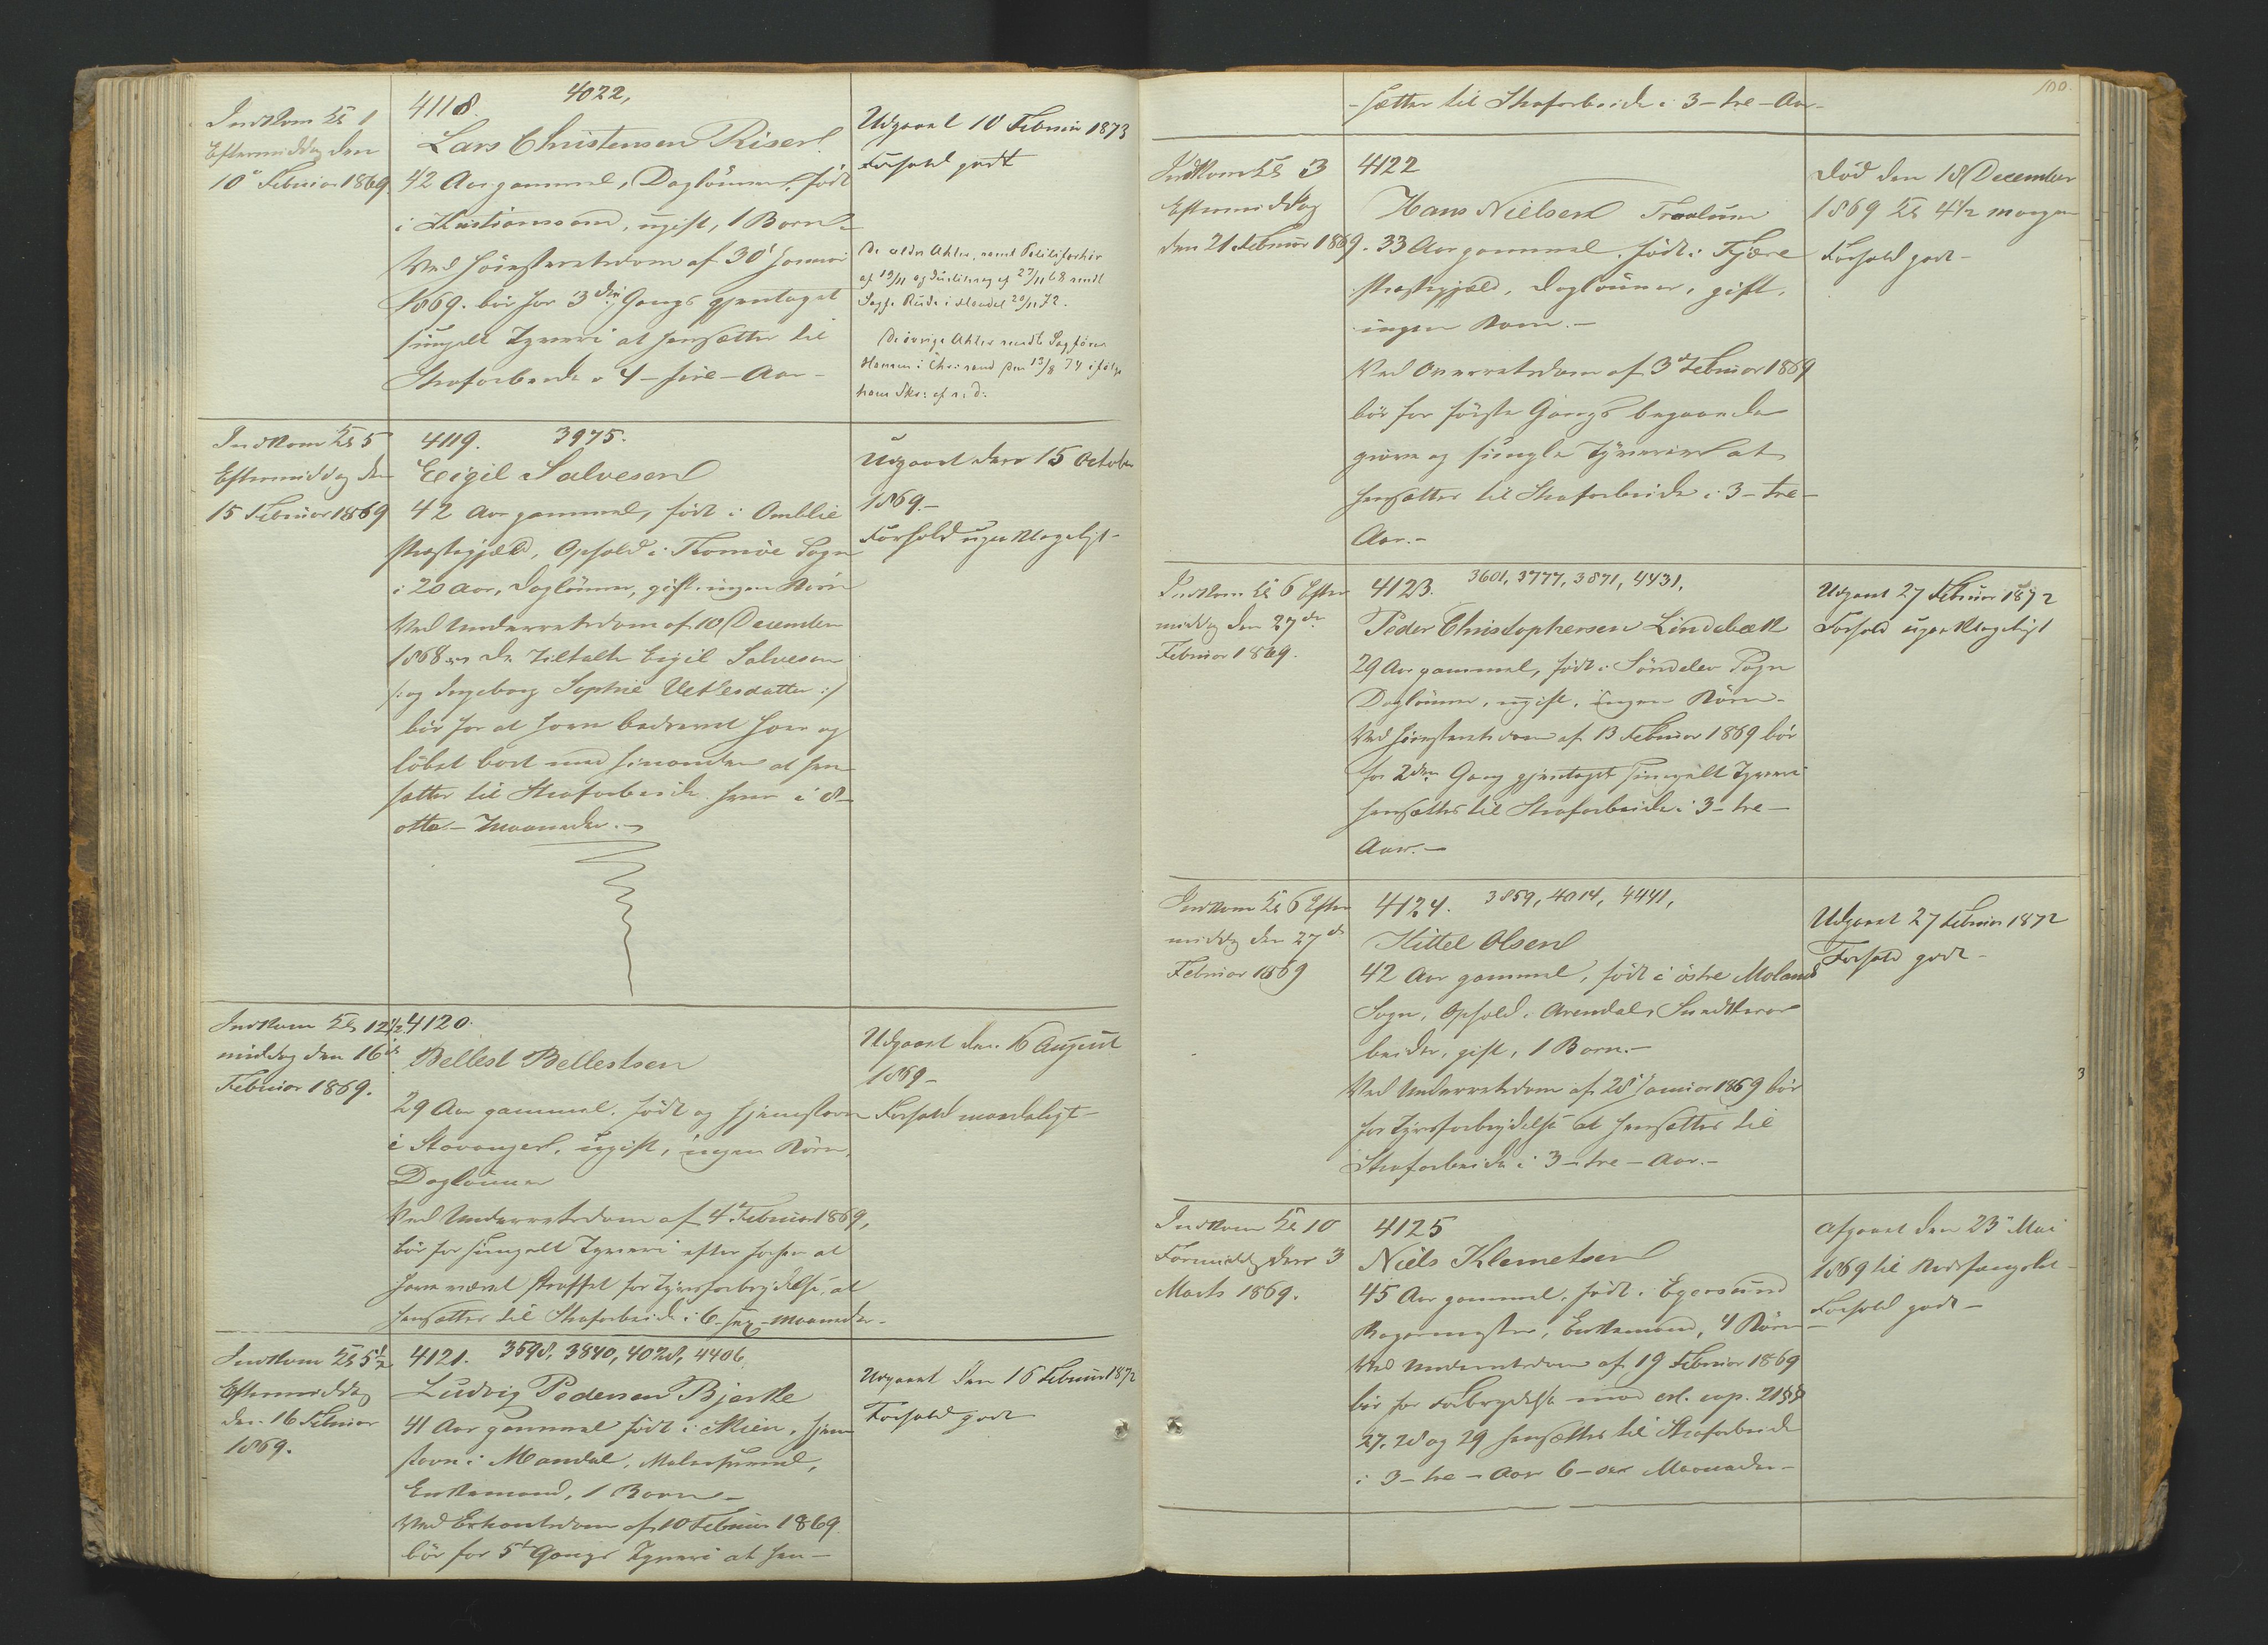 Indkom Kl 1
Eftermiddag den
10de Februar 1869
4118. 4022,
Lars Christensen Riser
42 Aar gammel, Daglönner, født
i Kristianssand, ugift, 1 Barn.
Ved Höiesteretsdom af 30' Januar
1869. bör for 3die Gangs gjentaget
simpelt Tyveri at hensættes til
Strafarbeide i 4 - fire - Aar -
Udgaaet 10 Februar 1873
Forhold godt
De ældre Akter, samt Politiforhör
af 19/11 og 27/11 68 sendt
Sagf. i Mandal 20/11 72.
De övrige Akter sendt Sagförer
Hansen i Chr.sand den 13/8 74 ifölge
hans Skr: af s. d.
Indkom Kl 5
Eftermiddag den
15 Februar 1869
4119. 3975.
Eigil Salvesen
42 Aar gammel, født i Omblie
Præstegjæld, Ophold i Tromöe Sogn
i 20 Aar, Daglönner, gift, ingen Börn
Ved Underretsdom af 10 December
1868 er de Tiltalte Eigil Salvesen
/: og Ingeborg Sophie Vetlesdatter :/
bör for at have bedrevet Hoer og
löbet bort med hinanden at hen-
sættes til Strafarbeide hver i 8 -
otte - Maaneder. -
Udgaaet den 15 October
1869. -
Forhold uperklageligt -
Indkom Kl 12 1/2
middag den 16de
Februar 1869.
4120.
Bellest Bellestsen
29 Aar gammel, født og hjemstavn
i Stavanger, ugift, ingen Börn,
Daglönner
Ved Underretsdom af 4de Februar 1869,
bör for simpelt Tyveri efter forhen at
have været straffet for Tyvsforbrydelse, at
hensættes til Strafarbeide i 6 - sex - Maaneder -
Udgaaet den 16 August
1869 -
Forhold maadeligt -
Indkom Kl 5 1/2
Eftermiddag
den 16 Februar
1869.
4121. 3598, 3840, 4028, 4406
Ludvig Pedersen Bjerke
41 Aar gammel født i Skien, hjem-
stavn i Mandal, Malersvend,
Enkemand, 1 Barn -
Ved Extraretsdom af 10 Februar 1869
bör for 5te Gangs Tyveri at hen-
Udgaaet den 16 Februar 1872
Forhold godt
100.
- sættes til Strafarbeide i 3 - tre - Aar -
Indkom Kl 3
Eftermiddag
den 21. Februar 1869.
4122
Hans Nielsen
33 Aar gammel, født i Fjære
Præstegjæld, Daglönner, gift,
ingen Barn. -
Ved Overretsdom af 3de Februar 1869
bör for förste Gangs begaaede
grove og simple Tyverier at
hensættes til Strafarbeide i 3 - tre -
Aar. -
Död den 18 December
1869 Kl 4 1/2 morgen
Forhold godt -
Indkom Kl 6 Efter
middag den 27de
Februar 1869.
4123. 3601, 3777, 3871, 4431,
Peder Christophersen Lindebæk
29 Aar gammel, født i Söndelev Sogn
Daglönner, ugift, ingen Börn -
Ved Höiesteretsdom af 13 Februar 1869 bör
for 2den Gang gjentaget simpelt Tyveri
hensættes til Strafarbeide i 3 - tre -
Aar. -
Udgaaet 27 Februar 1872
Forhold uperklageligt
Indkom Kl 6 Efter
middag den 27de
Februar 1869
4124. 3859, 4014, 4441,
Kittel Olsen
42 Aar gammel, født i östre Moland
Sogn, Ophold i Arendal, Snedkerar-
beider, gift, 1 Barn. -
Ved Underretsdom af 28' Januar 1869 bör
for Tyvsforbrydelse at hensættes til
Strafarbeide i 3 - tre - Aar. -
Udgaaet 27 Februar 1872
Forhold godt -
Indkom Kl 10
Formiddag den 3
Marts 1869.
4125
Niels Klemetsen
45 Aar gammel, født i Egersund
Bagermester, Enkemand, 4 Börn
Ved Underretsdom af 19 Februar 1869
bör for Forbrydelse mod crl. cap. 21 §§
27, 28 og 29 hensættes til Strafarbeide
i 3 - tre - Aar 6 - sex Maaneder -
Afgaaet den 23' Mai
1869 til Bodsfængslet -
Forhold godt -